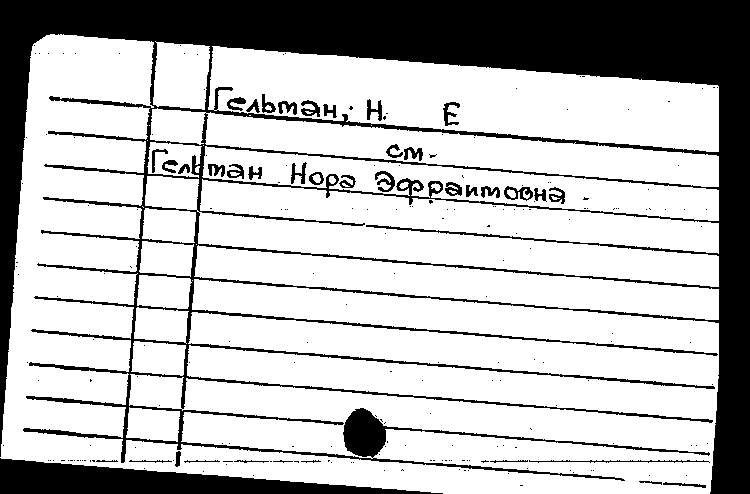 Гельман, Н. Е
см.
Гельман Нора Эфраимовна.